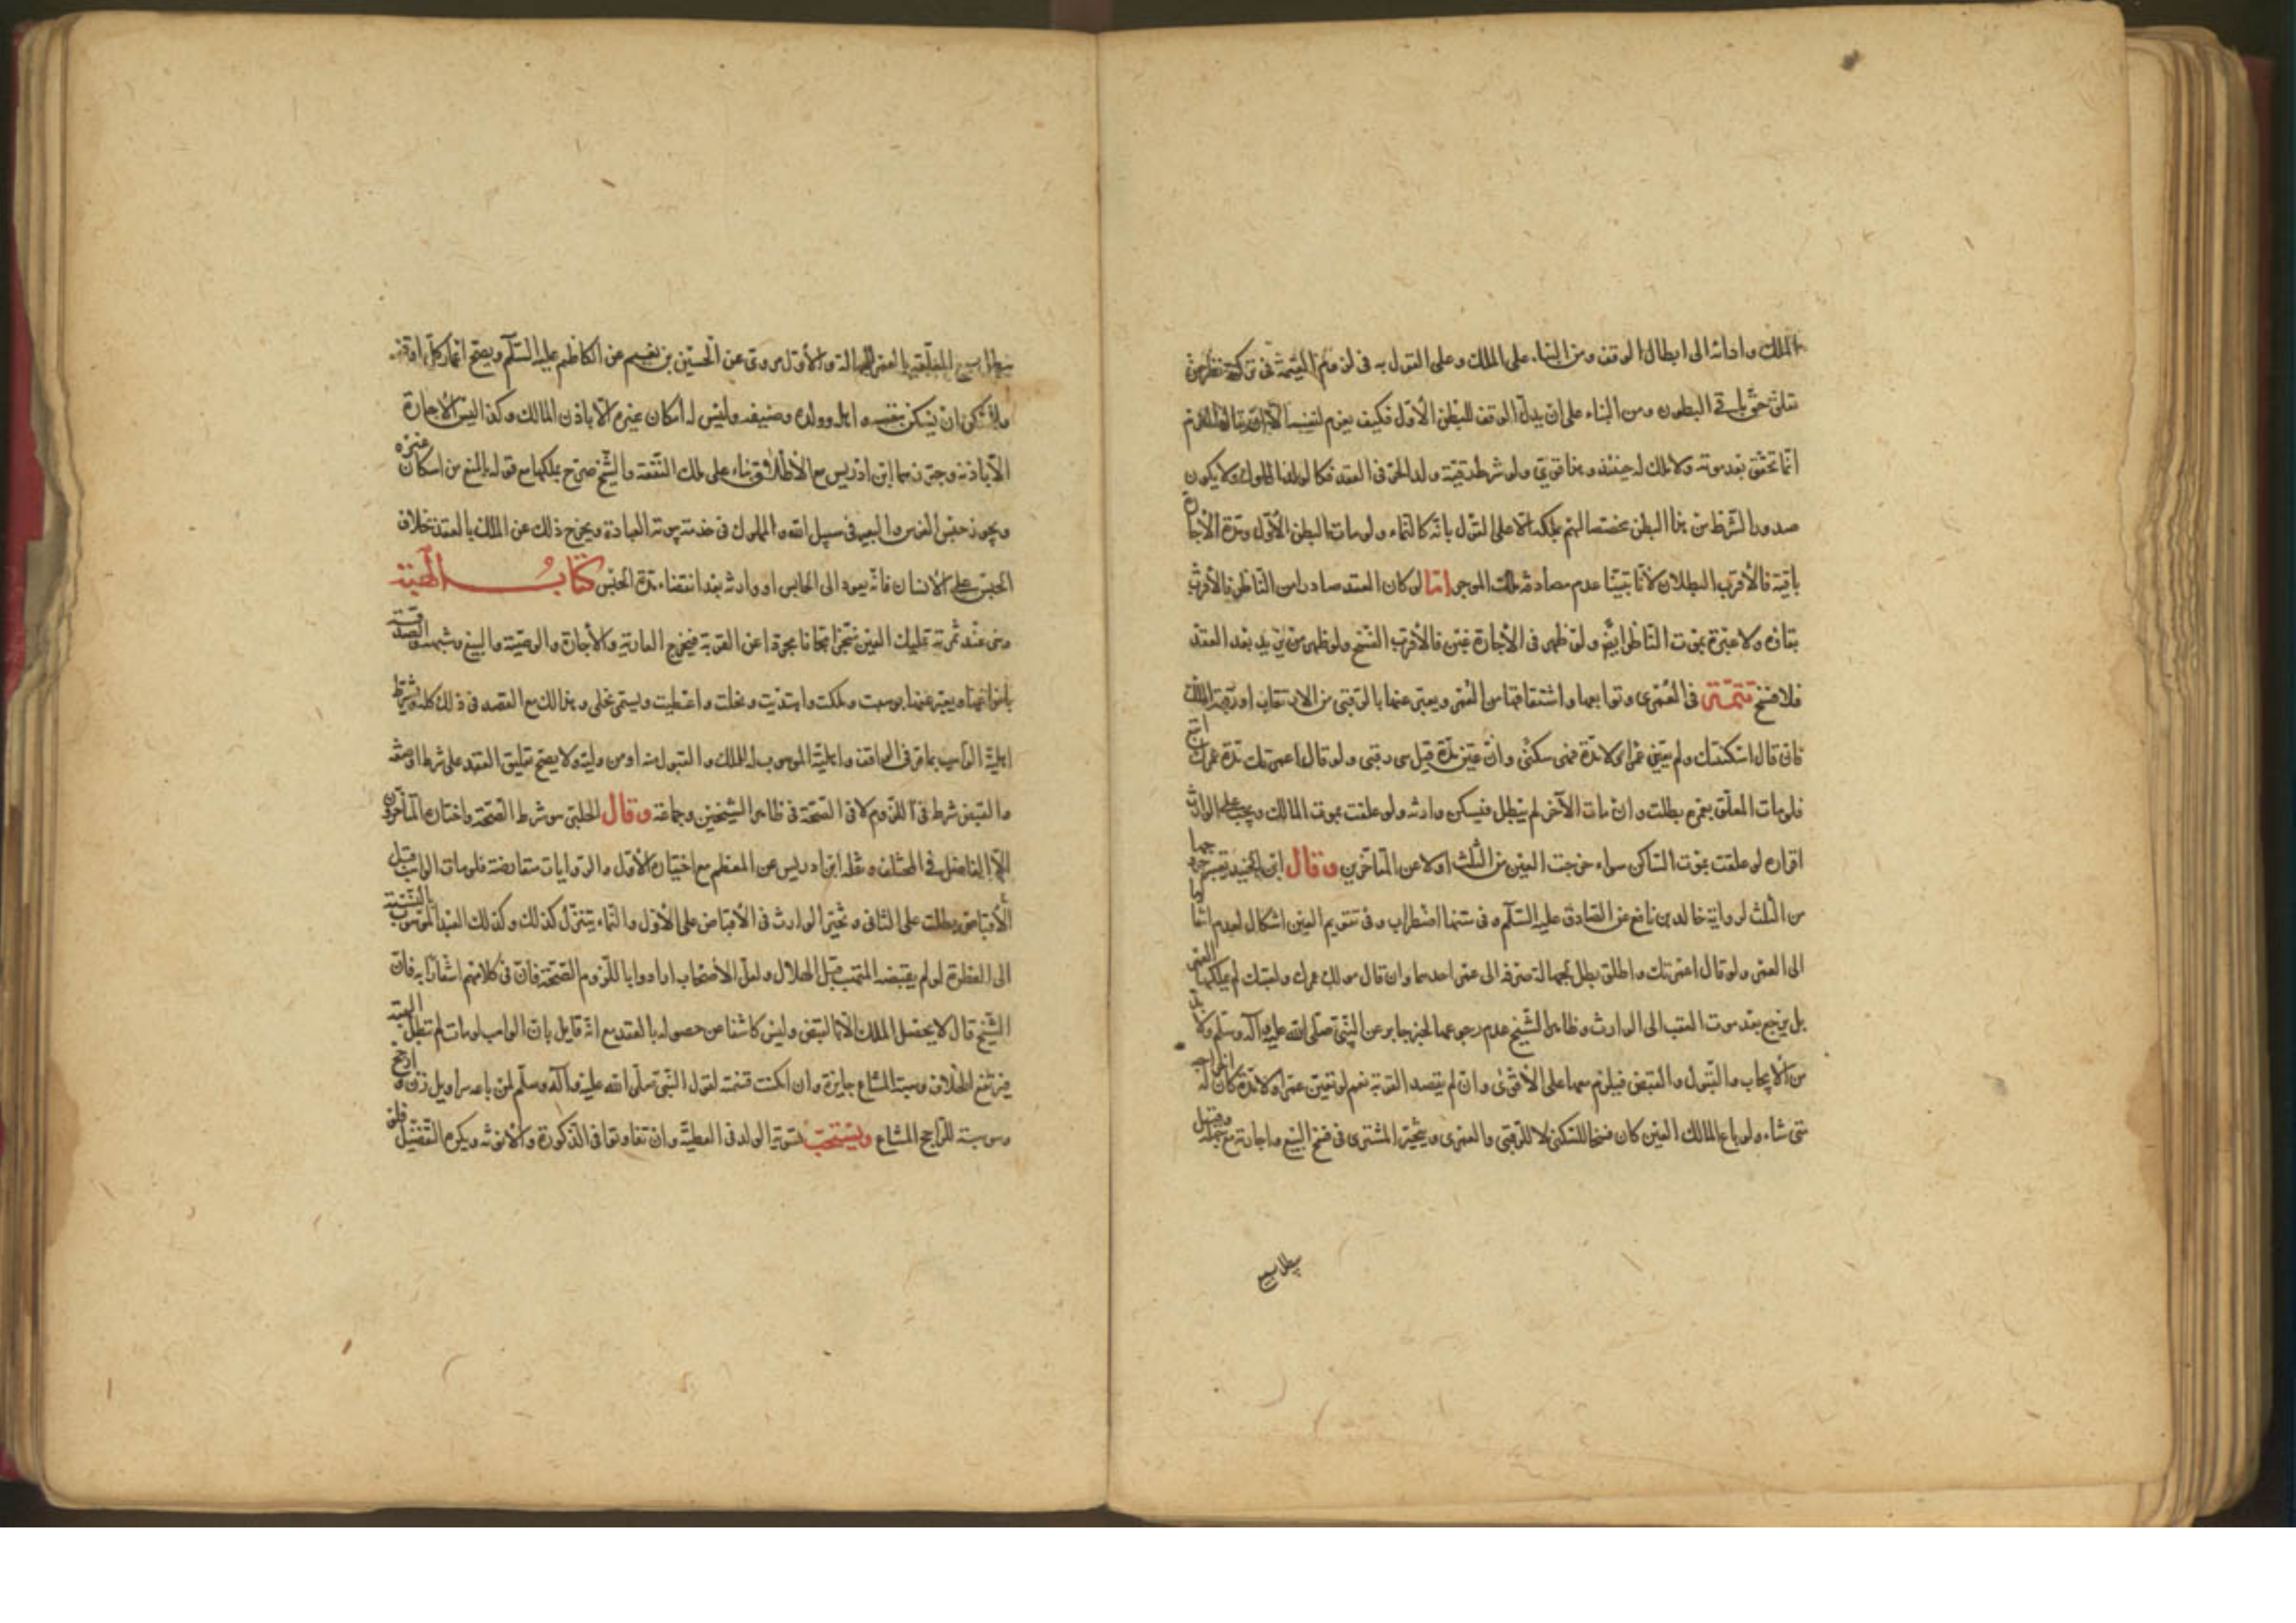 الملك وادائه الى ابطال الوقف ومن البناء على الملك وعلى القول به فى لزوم القيمة فى تركته نظر من
تعلق حق باقي البطون ومن البناء على ان بدل الوقف للبطن الأول فكيف يغرم لنفسه الا ان يقال
انما تحقق بعد موته ولا ملك له حينئذ وهذا قوي ولو شرط رقية ولد الحر فى العقد فكالولد المملوك ولا يكون
صدور الشرط من هذا البطن مختصا بهم بملكه الا على القول بانه كالنماء ولو مات البطن الأول ومدة الأجارة
باقية فالأقرب البطلان لأنا تبينا عدم مصادفة ملك الموجر اما لو كان العقد صادرا من الناظر فالأقرب
بقاؤه ولا عبرة بموت الناظر ايضا ولو ظهر فى الأجارة غبن فالأقرب الفسخ ولو ظهر من يزيد بعد العقد
فلا فسخ تتمة فى العمرى وتوابعها واشتقاقها من العمر ويعبر عنها بالرقبى من الارتقاب او رقبة الملك
فان قال اسكنتك ولم يعين عمرا ولا مدة فهى سكنى وان عين مدة قيل هى رقبى ولو قال اعمرتك مدة عمرك
فلو مات المعلق بعمره بطلت وان مات الآخر لم يبطل فيسكن وارثه ولو علقت بموت المالك وجب على الوارث
اقراره لو علقت بموت الساكن سواء خرجت العين من الثلث او لا عن المتأخرين وقال ابن الجنيد يعتبر خروجها
من الثلث لرواية خالد بن نافع عن الصادق عليه السلام وفى متنها اضطراب وفى تقويم العين اشكال لعدم
الى العمر ولو قال اعمرتك واطلق بطل لجهالة صرفه الى عمر احدهما وان قال هو لك عمرك ولعقبك لم يملكها المعمر
بل يرجع بعد موت العقب الى الوارث وظاهر الشيخ عدم رجوعها لخبر جابر عن النبى صلى الله عليه وآله وسلم ولا بد
من الايجاب والقبول والقبض فيلزم معها على الأقوى وان لم يقصد القربة نعم لو لم يعين عمرا ولا مدة كان له اخراجه
متى شاء ولو باع المالك العين كان فسخا للسكنى لا للرقبى والعمرى ويتخير المشترى فى فسخ البيع واجازته مع جهله وقيل
يبطل بيع
يبطل بيع المعلقة بالعمر للجهالة والأول مروى عن الحسين بن نعيم عن الكاظم عليه السلام ويصح اعمار كل ما صح وقفه
وللساكن ان يسكن بنفسه واهله وولده وضيفه وليس له اسكان غيرهم الا باذن المالك وكذا ليس له الاجارة
الا باذنه وجوزهما ابن ادريس مع الأطلاق بناء على ملك المنفعة والشيخ صرح بملكها مع قوله بالمنع من اسكان غيره
ويجوز حبس الفرس والبعير فى سبيل الله والمملوك فى خدمة بيوت العبادة ويخرج ذلك عن الملك بالعقد بخلاف
الحبس على الانسان فانه يعود الى الحابس او وارثه بعد انقضاء مدة الحبس كتاب الهبة
وهى عقد ثمرته تمليك العين منجزا مجانا مجردا عن القربة فيخرج العارية والأجارة والوصية والبيع وشبهه والصدقة
بانواعها ويعبر عنها بوهبت وملكت واهديت ونحلت واعطيت ويسمى نحلى وهذا لك مع القصد فى ذلك كله ويشترط
اهلية الواهب بما مر فى الواقف واهلية الموهوب له للملك والقبول منه او من وليه ولا يصح تعليق العقد على شرط او صفة
والقبض شرط فى اللزوم لا فى الصحة فى ظاهر الشيخين وجماعة وقال الحلبى هو شرط الصحة واختاره المتأخرون
الا الفاضل فى المختلف ونقله ابن ادريس عن المعظم مع اختياره الأول والروايات متعارضة فلو مات الواهب قبل
الأقباض بطلت على الثانى وتخير الوارث فى الأقباض على الأول والنماء يتنزل كذلك وكذلك العبد الموهوب بالنسبة
الى الفطرة لو لم يقبضه المتهب قبل الهلال ولعل الأصحاب ارادوا باللزوم الصحة فان فى كلامهم اشعارا به فان
الشيخ قال لا يحصل الملك الا بالقبض وليس كاشفا عن حصوله بالعقد مع انه قائل بان الواهب لو مات لم تبطل الهبة
فيرتفع الخلاف وهبة المشاع جايزة وان امكنت قسمته لقول النبى صلى الله عليه وآله وسلم لمن باعه سراويل زن وارجح
وهو هبة للراجح المشاع ويستحب تسوية الولد فى العطية وان تفاوتوا فى الذكورة والانوثة ويكره التفضيل فلو